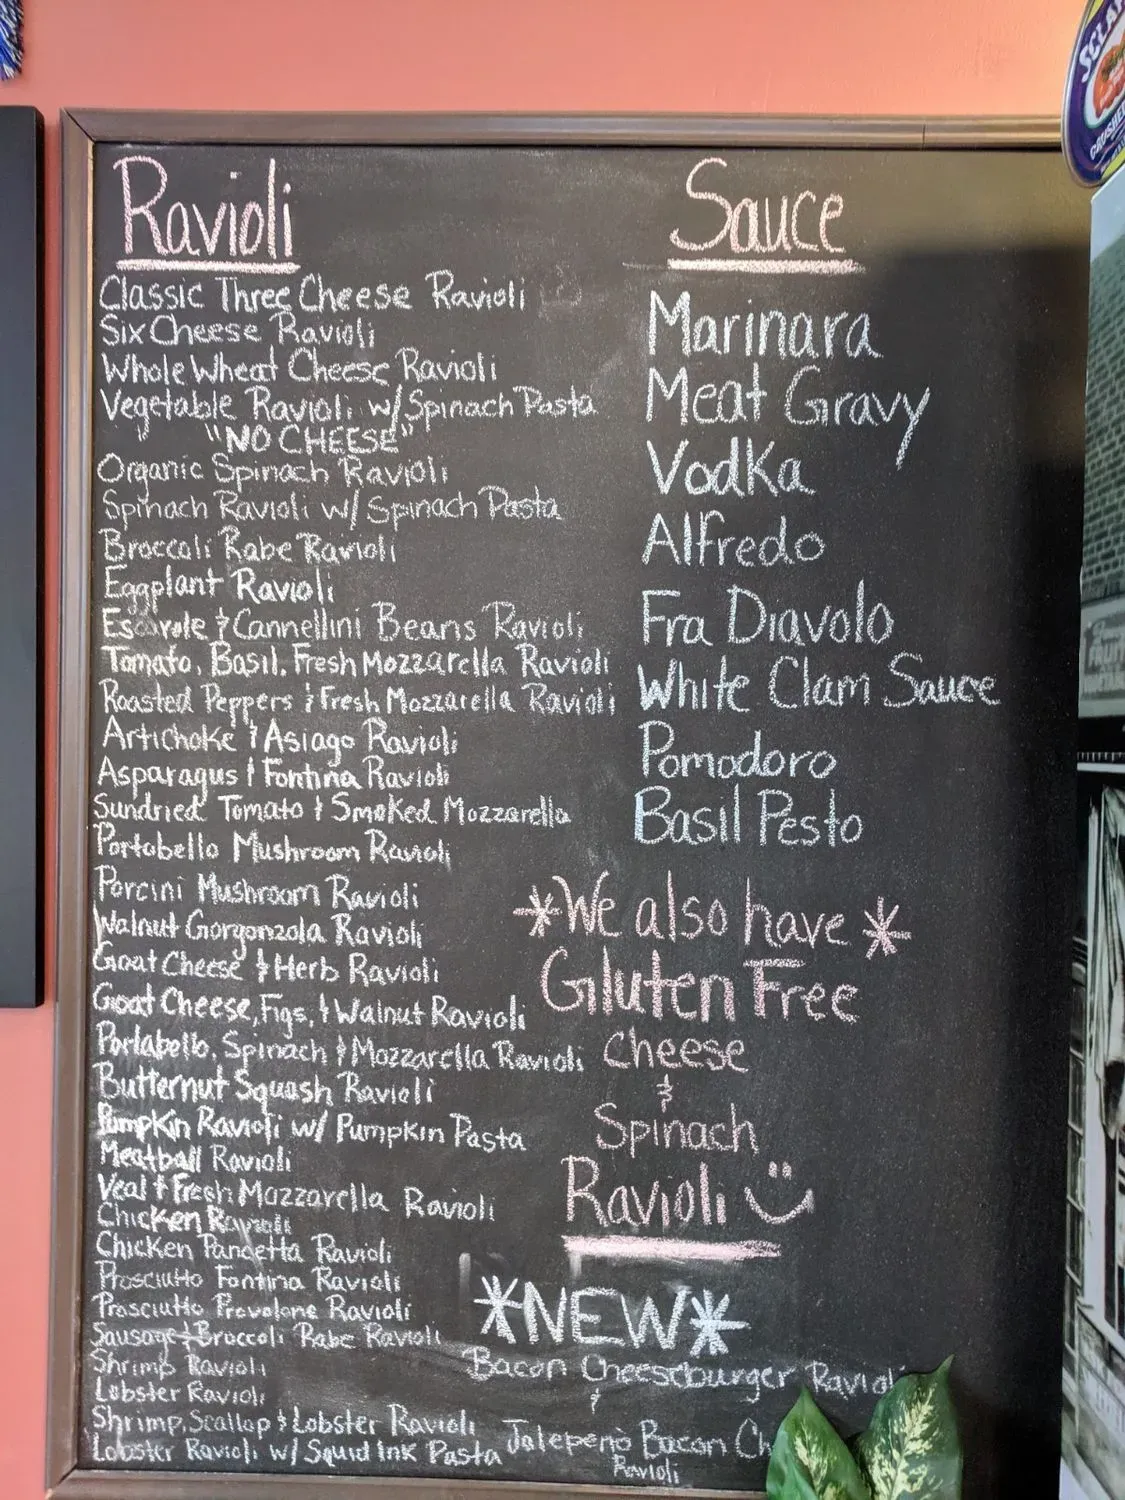 Ravioli
Classic Three Cheese Ravioli
Six Cheese Ravioli
Whole Wheat Cheese Ravioli
Vegetable Ravioli w/ Spinach Pasta
"NO CHEESE"
Organic Spinach Ravioli
Spinach Ravioli w/ Spinach Pasta
Broccoli Rabe Ravioli
Eggplant Ravioli
Escarole & Cannellini Beans Ravioli
Tomato, Basil, Fresh Mozzarella Ravioli
Roasted Peppers & Fresh Mozzarella Ravioli
Artichoke & Asiago Ravioli
Asparagus & Fontina Ravioli
Sundried Tomato & Smoked Mozzarella
Portobello Mushroom Ravioli
Porcini Mushroom Ravioli
Walnut Gorgonzola Ravioli
Goat Cheese & Herb Ravioli
Goat Cheese, Figs, & Walnut Ravioli
Portabello, Spinach & Mozzarella Ravioli
Butternut Squash Ravioli
Pumpkin Ravioli w/ Pumpkin Pasta
Meatball Ravioli
Veal & Fresh Mozzarella Ravioli
Chicken Ravioli
Chicken Pancetta Ravioli
Prosciutto Fontina Ravioli
Prosciutto Provolone Ravioli
Sausage & Broccoli Rabe Ravioli
Shrimp Ravioli
Lobster Ravioli
Shrimp, Scallop & Lobster Ravioli
Lobster Ravioli w/ Squid Ink Pasta
Sauce
Marinara
Meat Gravy
Vodka
Alfredo
Fra Diavolo
White Clam Sauce
Pomodoro
Basil Pesto
*We also have*
Gluten Free
Cheese
&
Spinach
Ravioli
*NEW*
Bacon Cheeseburger Ravioli
&
Jalepeno Bacon Ch
Ravioli